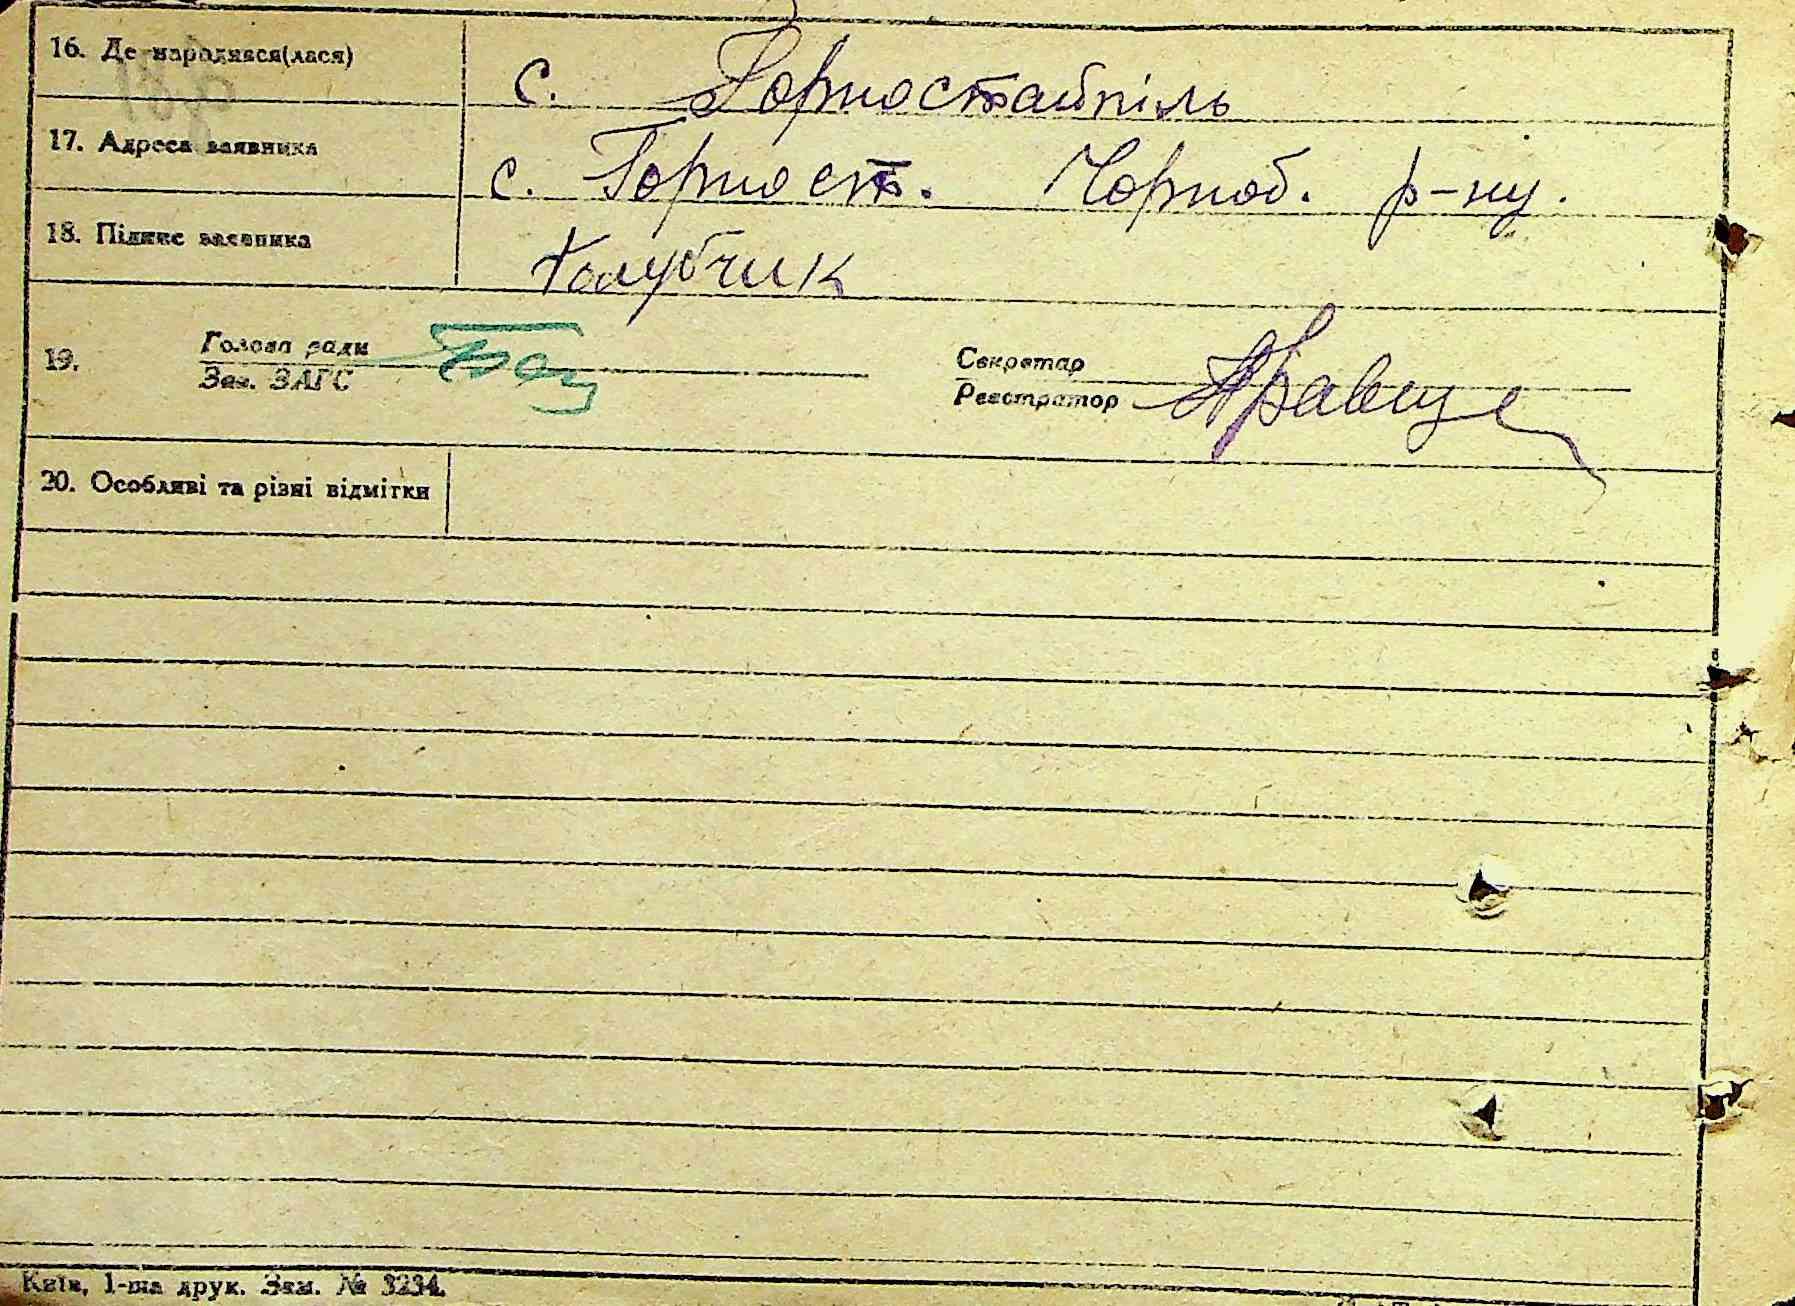 16. Де народився(лася) с. Горностайпіль
17. Адреса заявника с. Горност. Чорноб. р-ну.
18. Підпис заявника Голубчик
19. Голова ради
Зав. ЗАГС
Секретар
Реєстратор
20. Особливі та різні відмітки
Київ, 1-ша друк. Зам. № 3234.